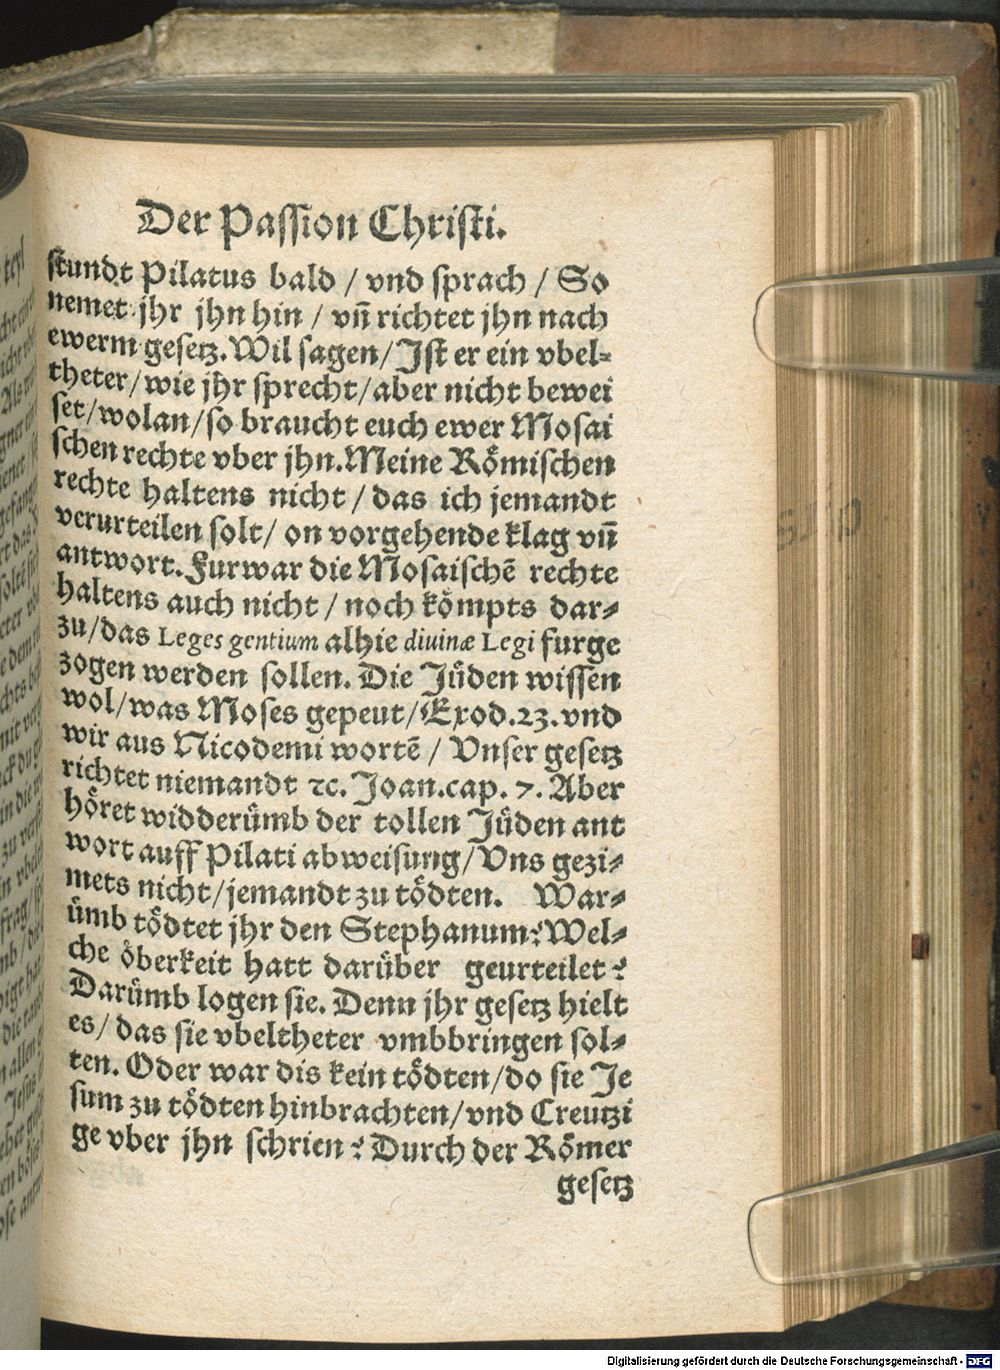 Der Passion Christi.
stundt Pilatus bald / vnd sprach / So
nemet jhr jhn hin / vñ richtet jhn nach
ewerm gesetz. Wil sagen / Ist er ein vbel⸗
theter / wie jhr sprecht / aber nicht bewei
set / wolan / so braucht euch ewer Mosai
schen rechte vber jhn. Meine Römischen
rechte haltens nicht / das ich jemandt
verurteilen solt / on vorgehende klag vñ
antwort. Furwar die Mosaischē rechte
haltens auch nicht / noch kömpts dar⸗
zu / das Leges gentium alhie diuinæ Legi furge
zogen werden sollen. Die Jüden wissen
wol / was Moses gepeut / Exod. 23. vnd
wir aus Nicodemi wortē / Vnser gesetz
richtet niemandt ꝛc. Joan. cap. 7. Aber
höret widderümb der tollen Jüden ant
wort auff Pilati abweisung / Vns gezi⸗
mets nicht / jemandt zu tödten. War⸗
ümb tödtet jhr den Stephanum? Wel⸗
che öberkeit hatt darüber geurteilet?
Darümb logen sie. Denn jhr gesetz hielt
es / das sie vbeltheter vmbbringen sol⸗
ten. Oder war dis kein tödten / do sie Je
sum zu tödten hinbrachten / vnd Creutzi
ge vber jhn schrien? Durch der Römer
gesetz
Digitalisierung gefördert durch die Deutsche Forschungsgemeinschaft - DFG